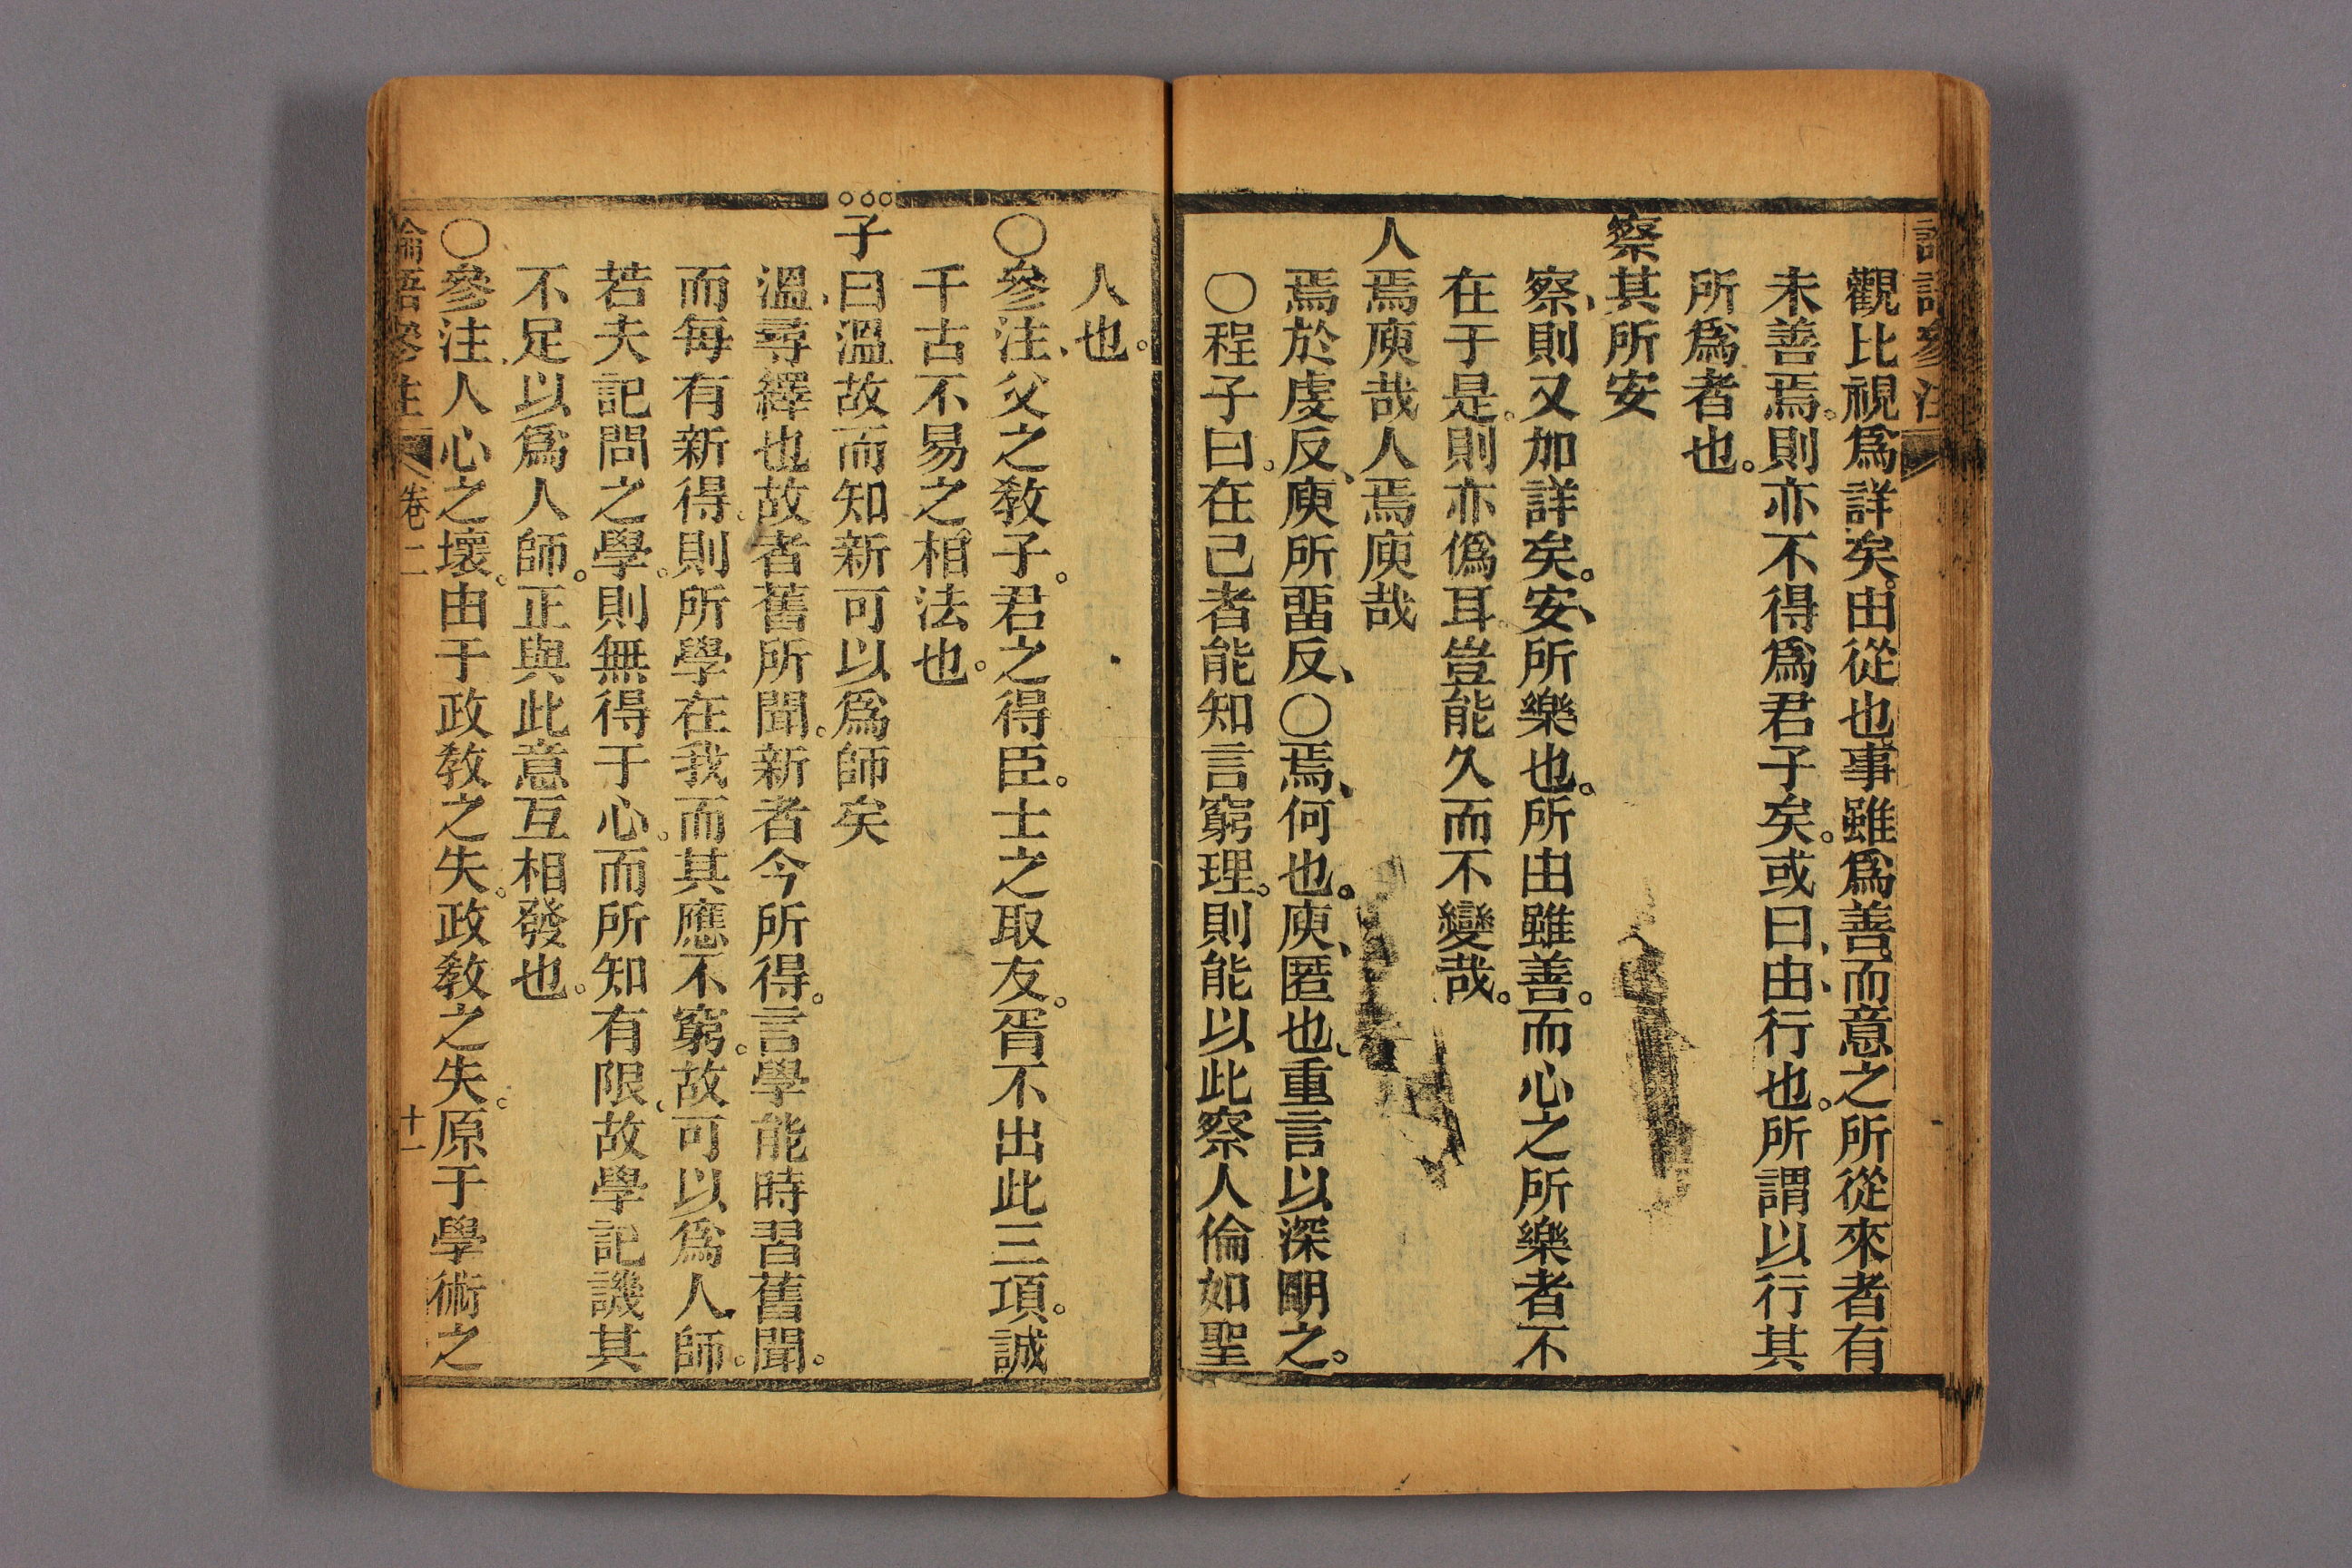 觀比視爲詳矣。由從也。事雖爲善。而意之所從來者有
未善焉。則亦不得爲君子矣。或曰、由、行也。所謂以行其
所爲者也。
察其所安
察、則又加詳矣。安、所樂也。所由雖善。而心之所樂者不
在于是。則亦僞耳。豈能久而不變哉。
人焉廋哉人焉廋哉
焉於虔反、廋所畱反、○焉、何也。廋、匿也。重言以深明之。
○程子曰。在己者能知言窮理。則能以此察人倫如聖
人也。
○參注、父之敎子。君之得臣。士之取友。胥不出此三項。誠
千古不易之相法也。
子曰溫故而知新可以爲師矣
溫、尋繹也。故者舊所聞。新者今所得。言學能時習舊聞。
而每有新得。則所學在我。而其應不窮。故可以爲人師。
若夫記問之學。則無得于心。而所知有限。故學記譏其
不足以爲人師。正與此意互相發也。
○參注、人心之壞。由于政敎之失。政敎之失。原于學術之
論語參注 卷二 十一